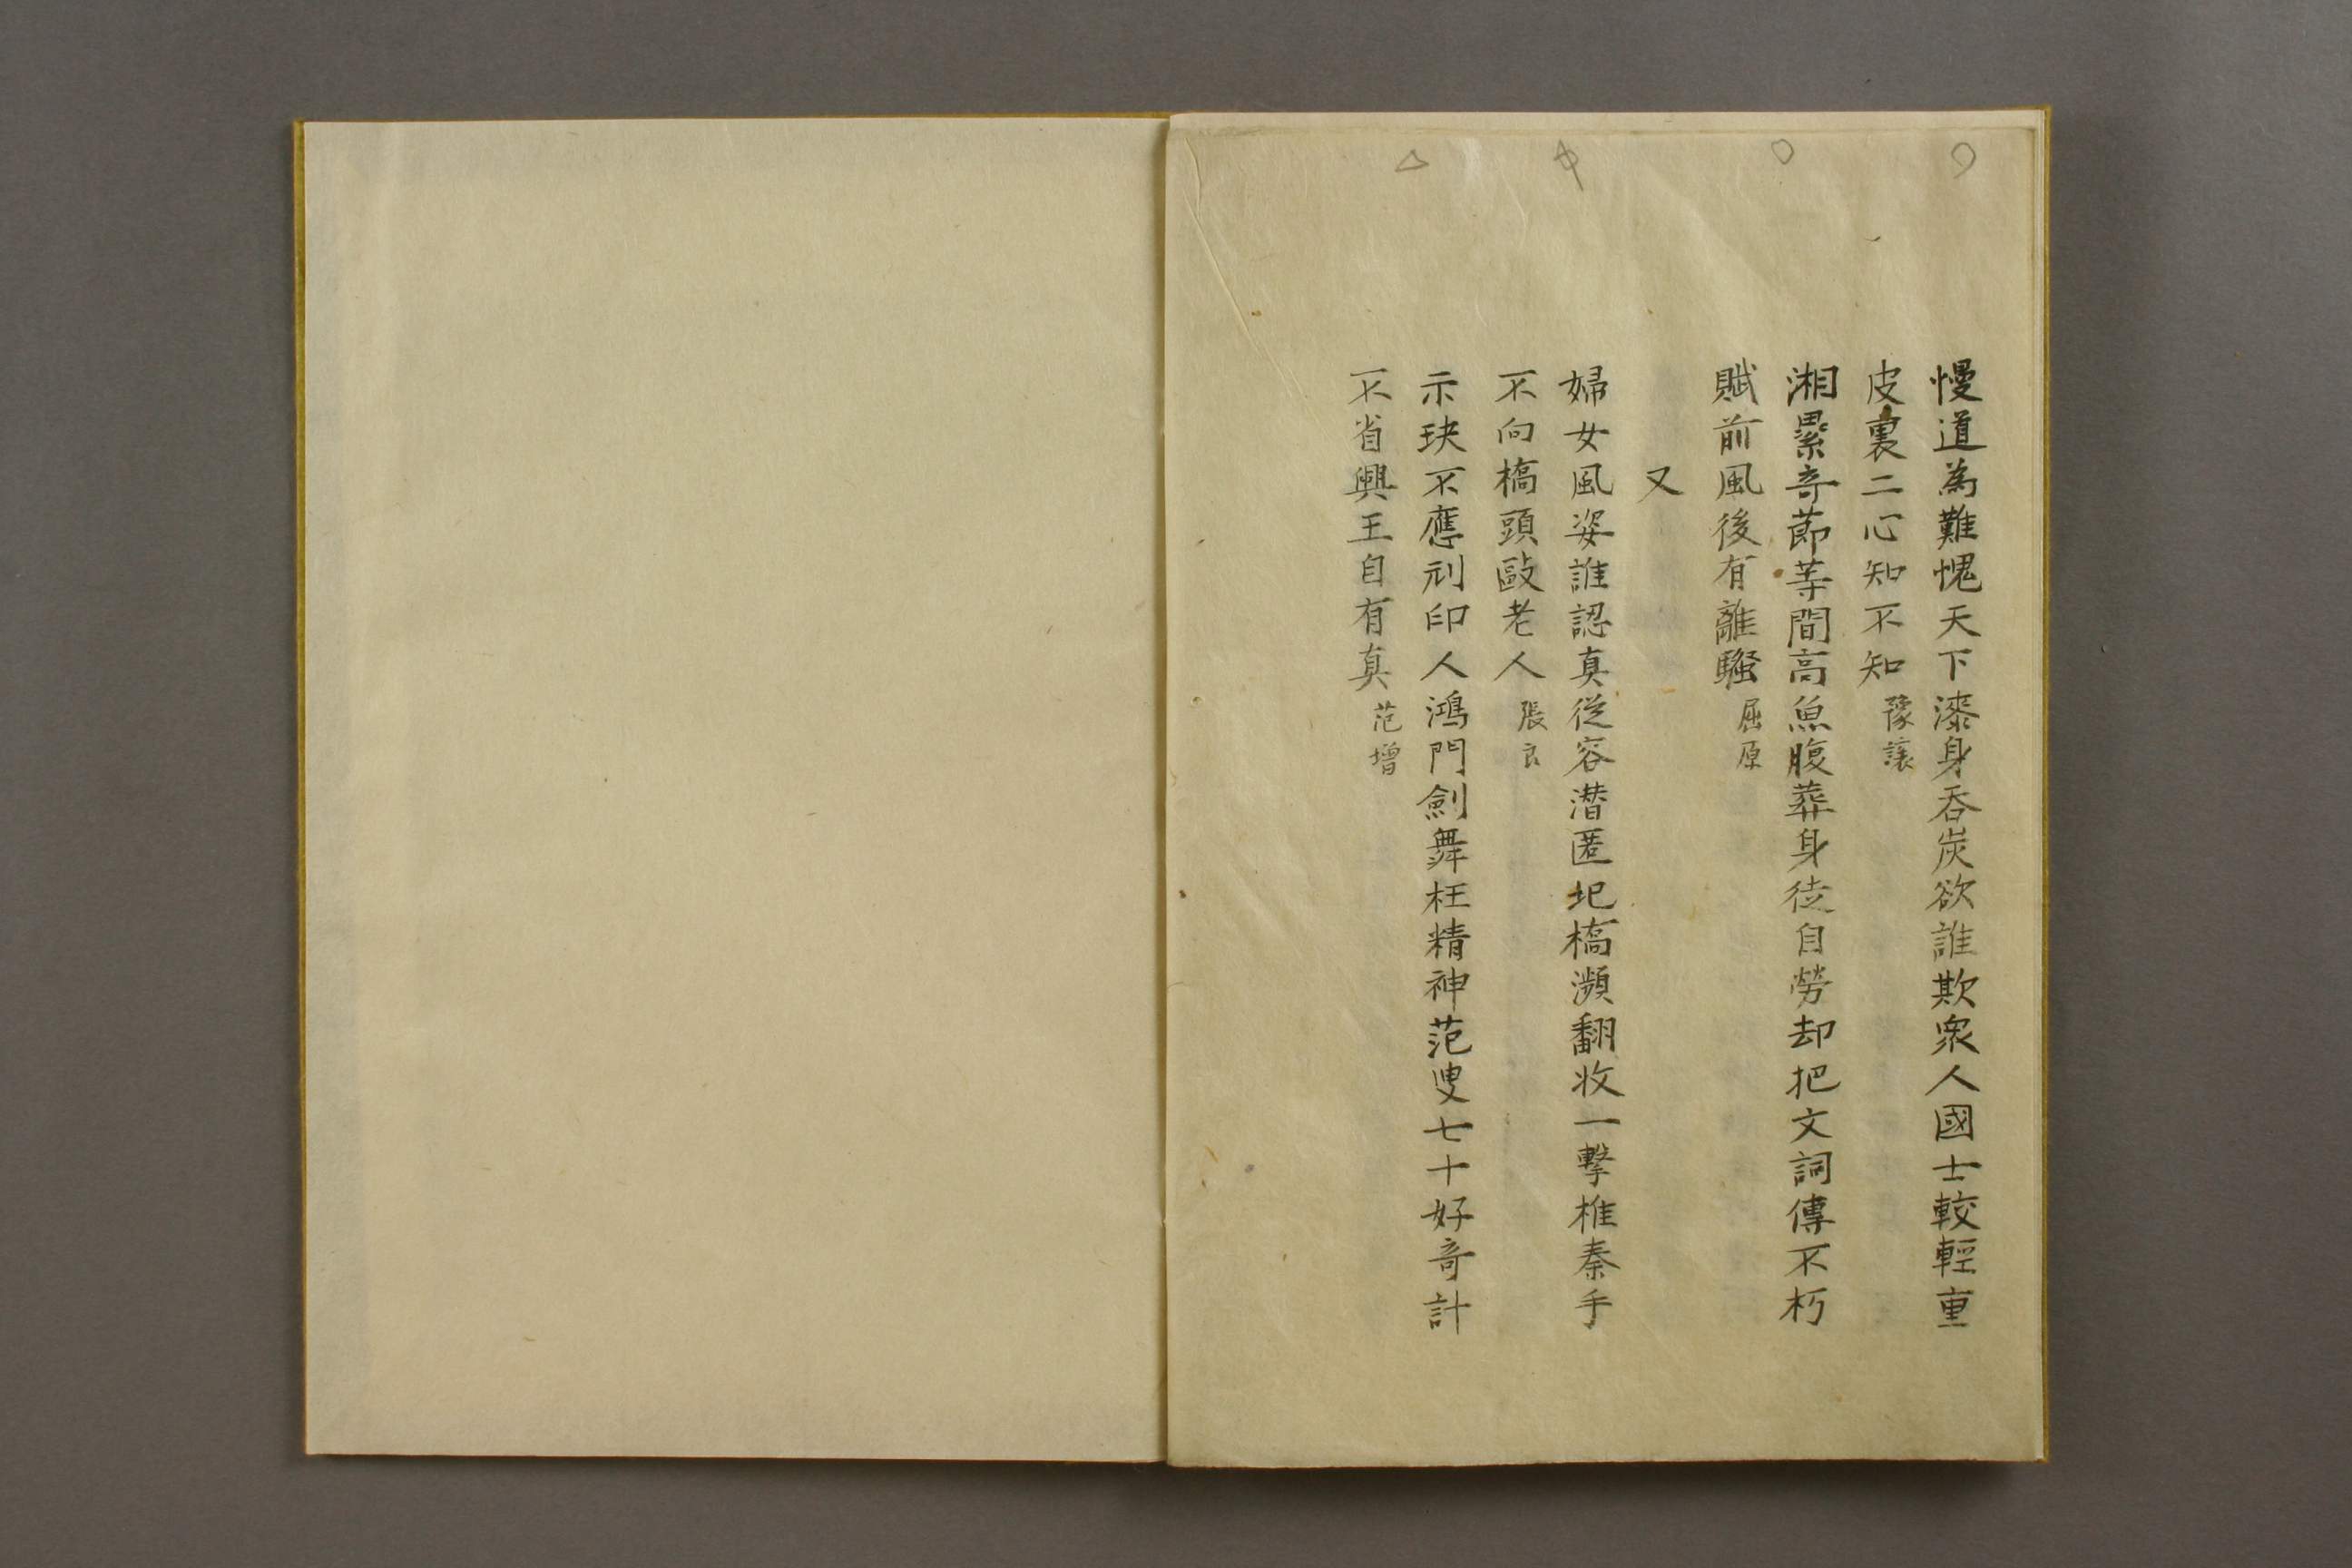 慢道為難愧天下漆身吞炭欲誰欺衆人國士較輕重
皮裏二心知不知 豫讓
湘纍奇節等間高魚腹葬身徒自勞却把文詞傳不朽
賦前風後有離騷 屈原
又
婦女風姿誰認真從容潜匿圯橋瀕翻收一擊椎秦手
不向橋頭毆老人 張良
示玦不應刓印人鴻門劍舞枉精神范叟七十好奇計
不省興王自有真 范增